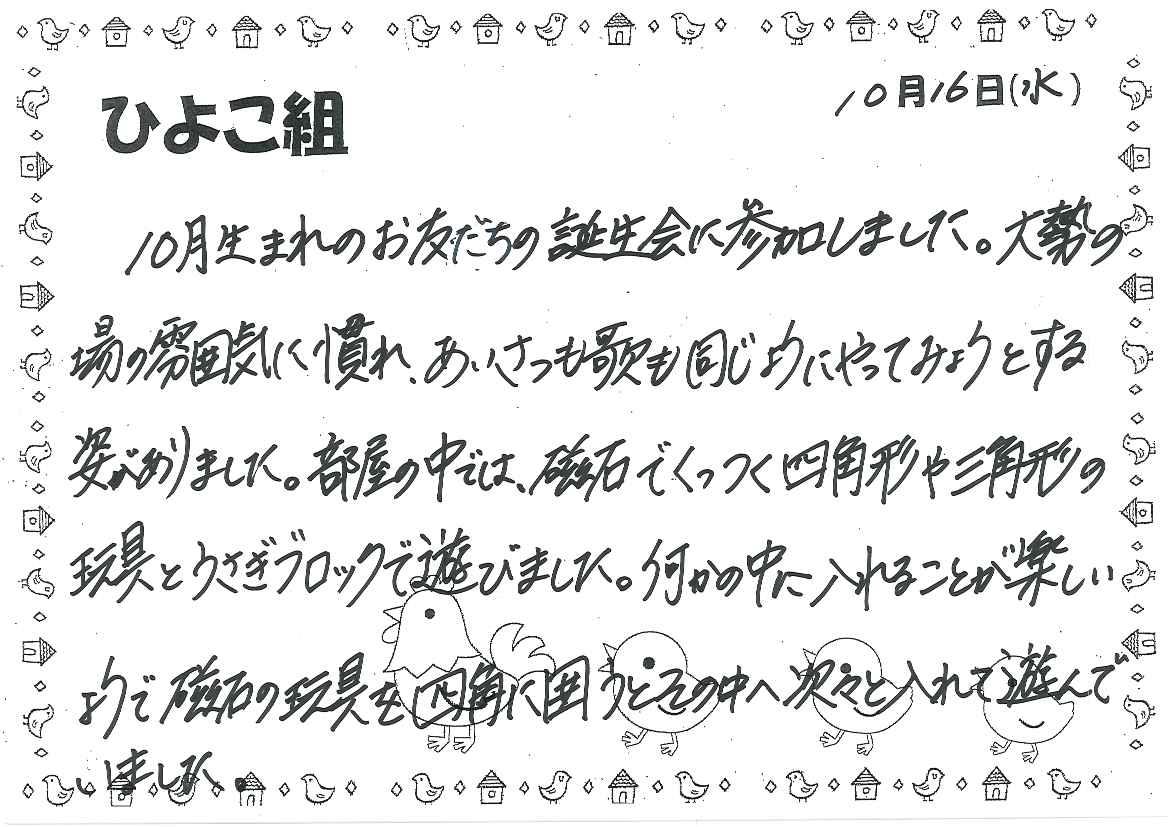 ひよこ組
10月16日(水)
10月生まれのお友だちの誕生会に参加しました。大勢の
場の雰囲気に慣れ、あいさつも歌も同じようにやってみようとする
姿がありました。部屋の中では、磁石でくっつく四角形や三角形の
玩具とうさぎブロックで遊びました。何かの中に入れることが楽しい
ようで磁石の玩具を四角に囲うとその中へ次々と入れて遊んで
いました。